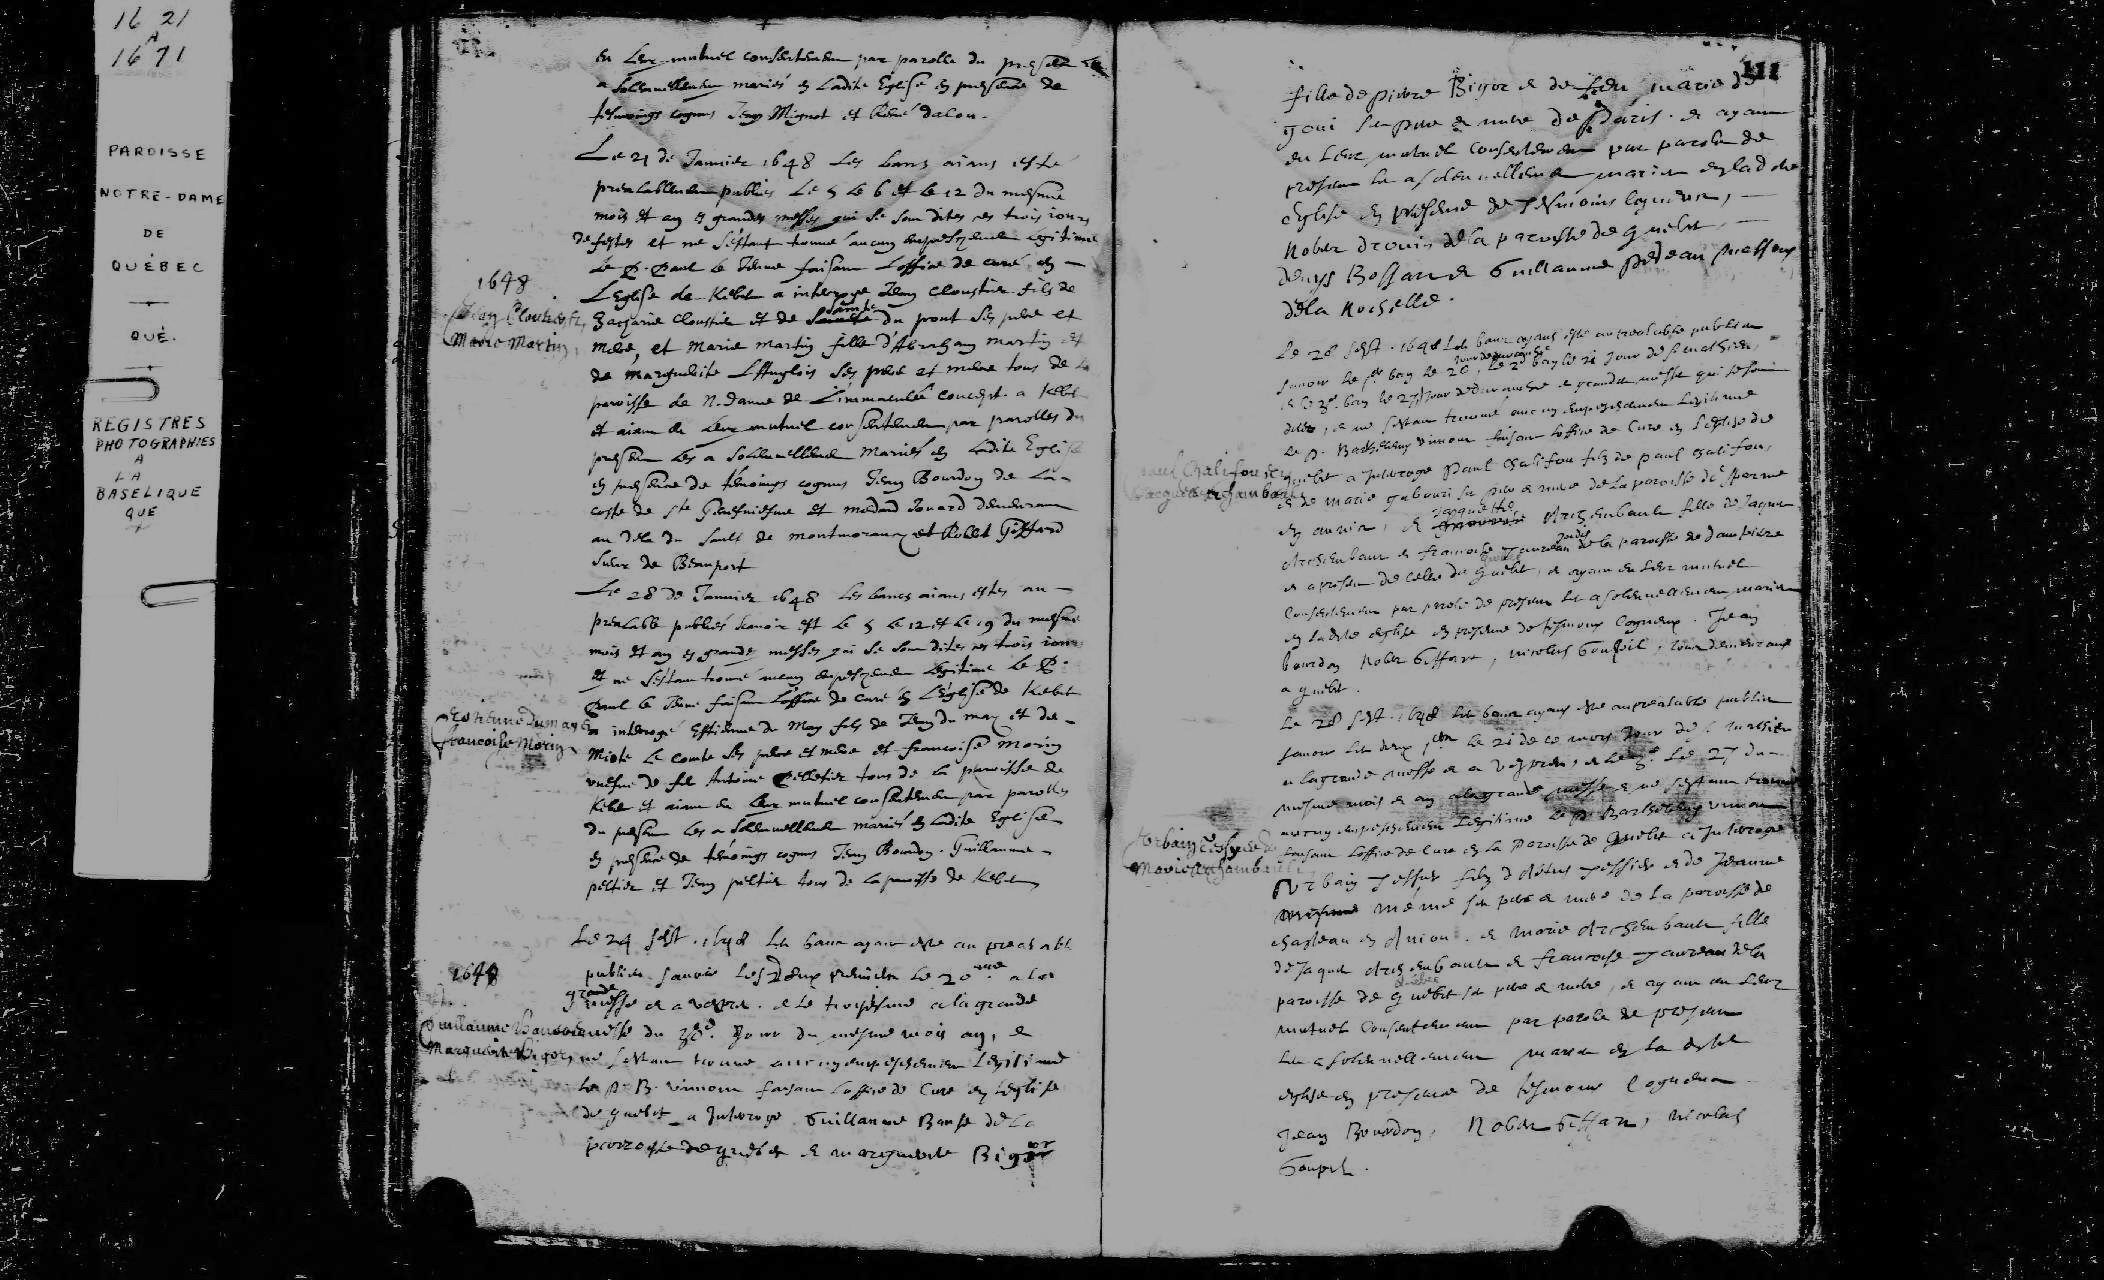 16 21
A
16 71
PAROISSE
NOTRE-DAME
DE
QUÉBEC
QUÉ.
REGISTRES
PHOTOGRAPHIES
A
LA
BASELIQUE
QUÉ
en leur mutuel consentement par parolle du present les
a solemnellement mariés en ladite Eglise en presence de
tesmoings cognus Jean Mignot et René
Le 21 de Janvier 1648 les bans aians esté
prealablement publiés le 5 le 6 et le 12 du mesme
mois et an es grandes messes qui se sont dites ces trois iours
de festes et ne s'estant trouvé aucun empeschement legitime
Le P. Paul le Jeune faisant l'office de curé en
1648
L'Eglise de Kebec a interrogé Jean Cloustier fils de
Jean Cloutier &
Zacharie Cloustier et de Sainte du pont ses pere et
Marie Martin
mere, et Marie martin fille d'Abraham martin et
de marguerite L'Anglois ses pere et mere tous de la
paroisse de N. dame de L'immaculée concept. a Kebec
et aiant eu leur mutuel consentement par parolles du
present les a solemnellement mariés en ladite Eglise
en presence de temoings cognus Jean Bourdon de La
coste de ste Geneviesve et
au dela du sault de montmorancy et Robert Giffard
sieur de Beauport
Le 28 de Janvier 1648 les bancs aians estés au
prealable publiés scavoir est le 5 le 12 et le 19 du mesme
mois et an es grandes messes qui se sont dites ces trois iours
et ne s'estant trouvé aucun empeschement legitime le P.
Paul le Jeune faisant l'office de curé en L'Eglise de Kebec
Estienne Dumay &
a interrogé Estienne de May fils de Jean du may et de
francoise Morin
le comte ses pere et mere et francoise morin
vuefve de feu Antoine Pelletier tous de la paroisse de
Kebec et aiant eu leur mutuel consentement par parolles
du present les a solemnellement mariés en ladite Eglise
en presence de temoings cognus Jean Bourdon. Guillaume
peltier et Jean peltier tous de la paroisse de Kebec
Le 24 sept. 1648 les bans ayant esté au prealable
publiés scavoir les deux premiers le 20 a la
1648
grande
messe et a vespre. et le troysiesme a la grande
Guillaume
messe du jour du mesme mois an, et
Marguerite Bigot
ne s'estant trouvé aucun empeschement legitime
le P. B. vimont faisant l'office de Curé en l'eglise
de quebec a interrogé Guillaume de la
paroisse de quebec et marguerite Bigot
111
fille de pierre Bigot et de feu marie
ses pere et mere de Paris. et ayant
eu leur mutuel consentement par parole de
present les a solemnellement mariés en ladite
eglise en presence de tesmoins
Rober drouin de la paroisse de quebec
denys et Guillaume
de la Rochelle.
Le 28 sept. 1648 les bans ayans esté au prealable publiés
scavoir le
jour de dimanche
ban le 20, le 2e ban le 21 jour de s. mathieu,
et le 3e. ban le 27 jour de dimanche a grande messe qui se sont
dites, et ne s'estant trouvé aucun empeschement legitime
Le P. Barthelemy vimont faisant l'office de Curé en l'eglise de
Paul Chalifou &
quebec a interrogé Paul Chalifou filz de paul chalifou,
Jacquette Archambault
et de marie gabouri ses pere et mere de la paroisse de
Jacquette
et Archenbault fille de Jaques
Archenbault et francoise toureau de la paroisse de dompierre
et a present de celle de quebec, et ayant eu leur mutuel
Consentement par parole de present les a solemnellement mariés
en ladite eglise en presence de tesmoins Cogneus. Jean
bourdon Rober Giffart, nicolas Goupil, tous demeurans
a quebec.
Le 28 sept. 1648 les bans ayans esté au prealable publiés
scavoir les deux le 21 de ce mois Jour de s. mathieu
a la grande messe et a vespres, et le 3e. le 27 du
mesme mois et an a la grande messe et ne s'estant trouvé
aucun empeschement legitime le P. Barthelemy vimont
Urbain &
faisant l'office de Curé en la Paroisse de quebec a interrogé
Marie Archambault
Urbain tessier filz d'Artus tessier et de Jeanne
ses pere et mere de la paroisse de
chasteau en Aniou. et marie Archenbault fille
de Jaques Archenbault et francoise toureau de la
paroisse de quebec ses pere et mere, et ayant eu leur
mutuel Consentement par parole de present
les a solemnellement mariés en ladite
eglise en presence de tesmoins Cogneus
Jean Bourdon, Rober Giffart, nicolas
Goupil.